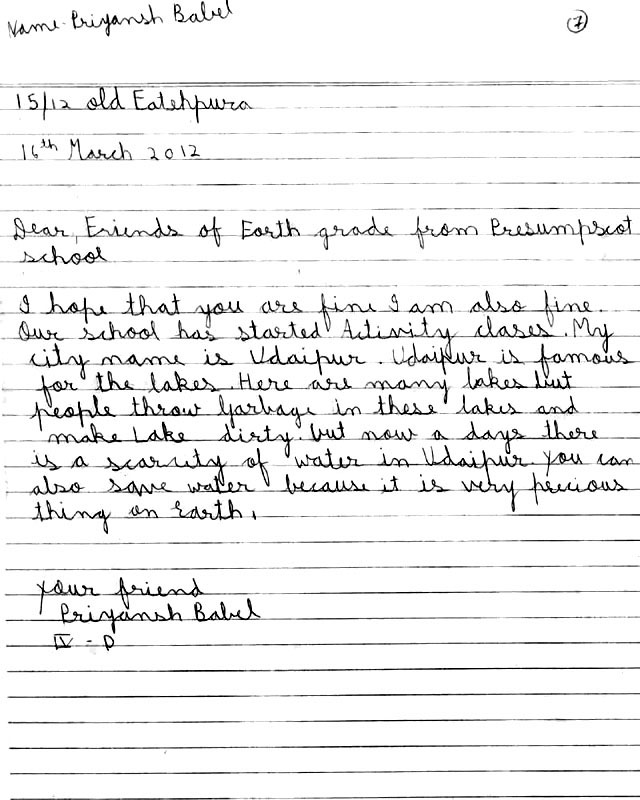 Name- Priyansh Babel
7
15/12 old Fatehpura
16th March 2012
Dear, Friends of Earth grade from Presumpscot
school
I hope that you are fine I am also fine.
Our school has started Activity clases. My
city name is Udaipur. Udaipur is famous
for the lakes. Here are many lakes but
people throw Garbage in these lakes and
make Lake dirty. but now a days there
is a scarcity of water in Udaipur you can
also save water because it is very precious
thing on Earth.
your friend
Priyansh Babel
IV - D